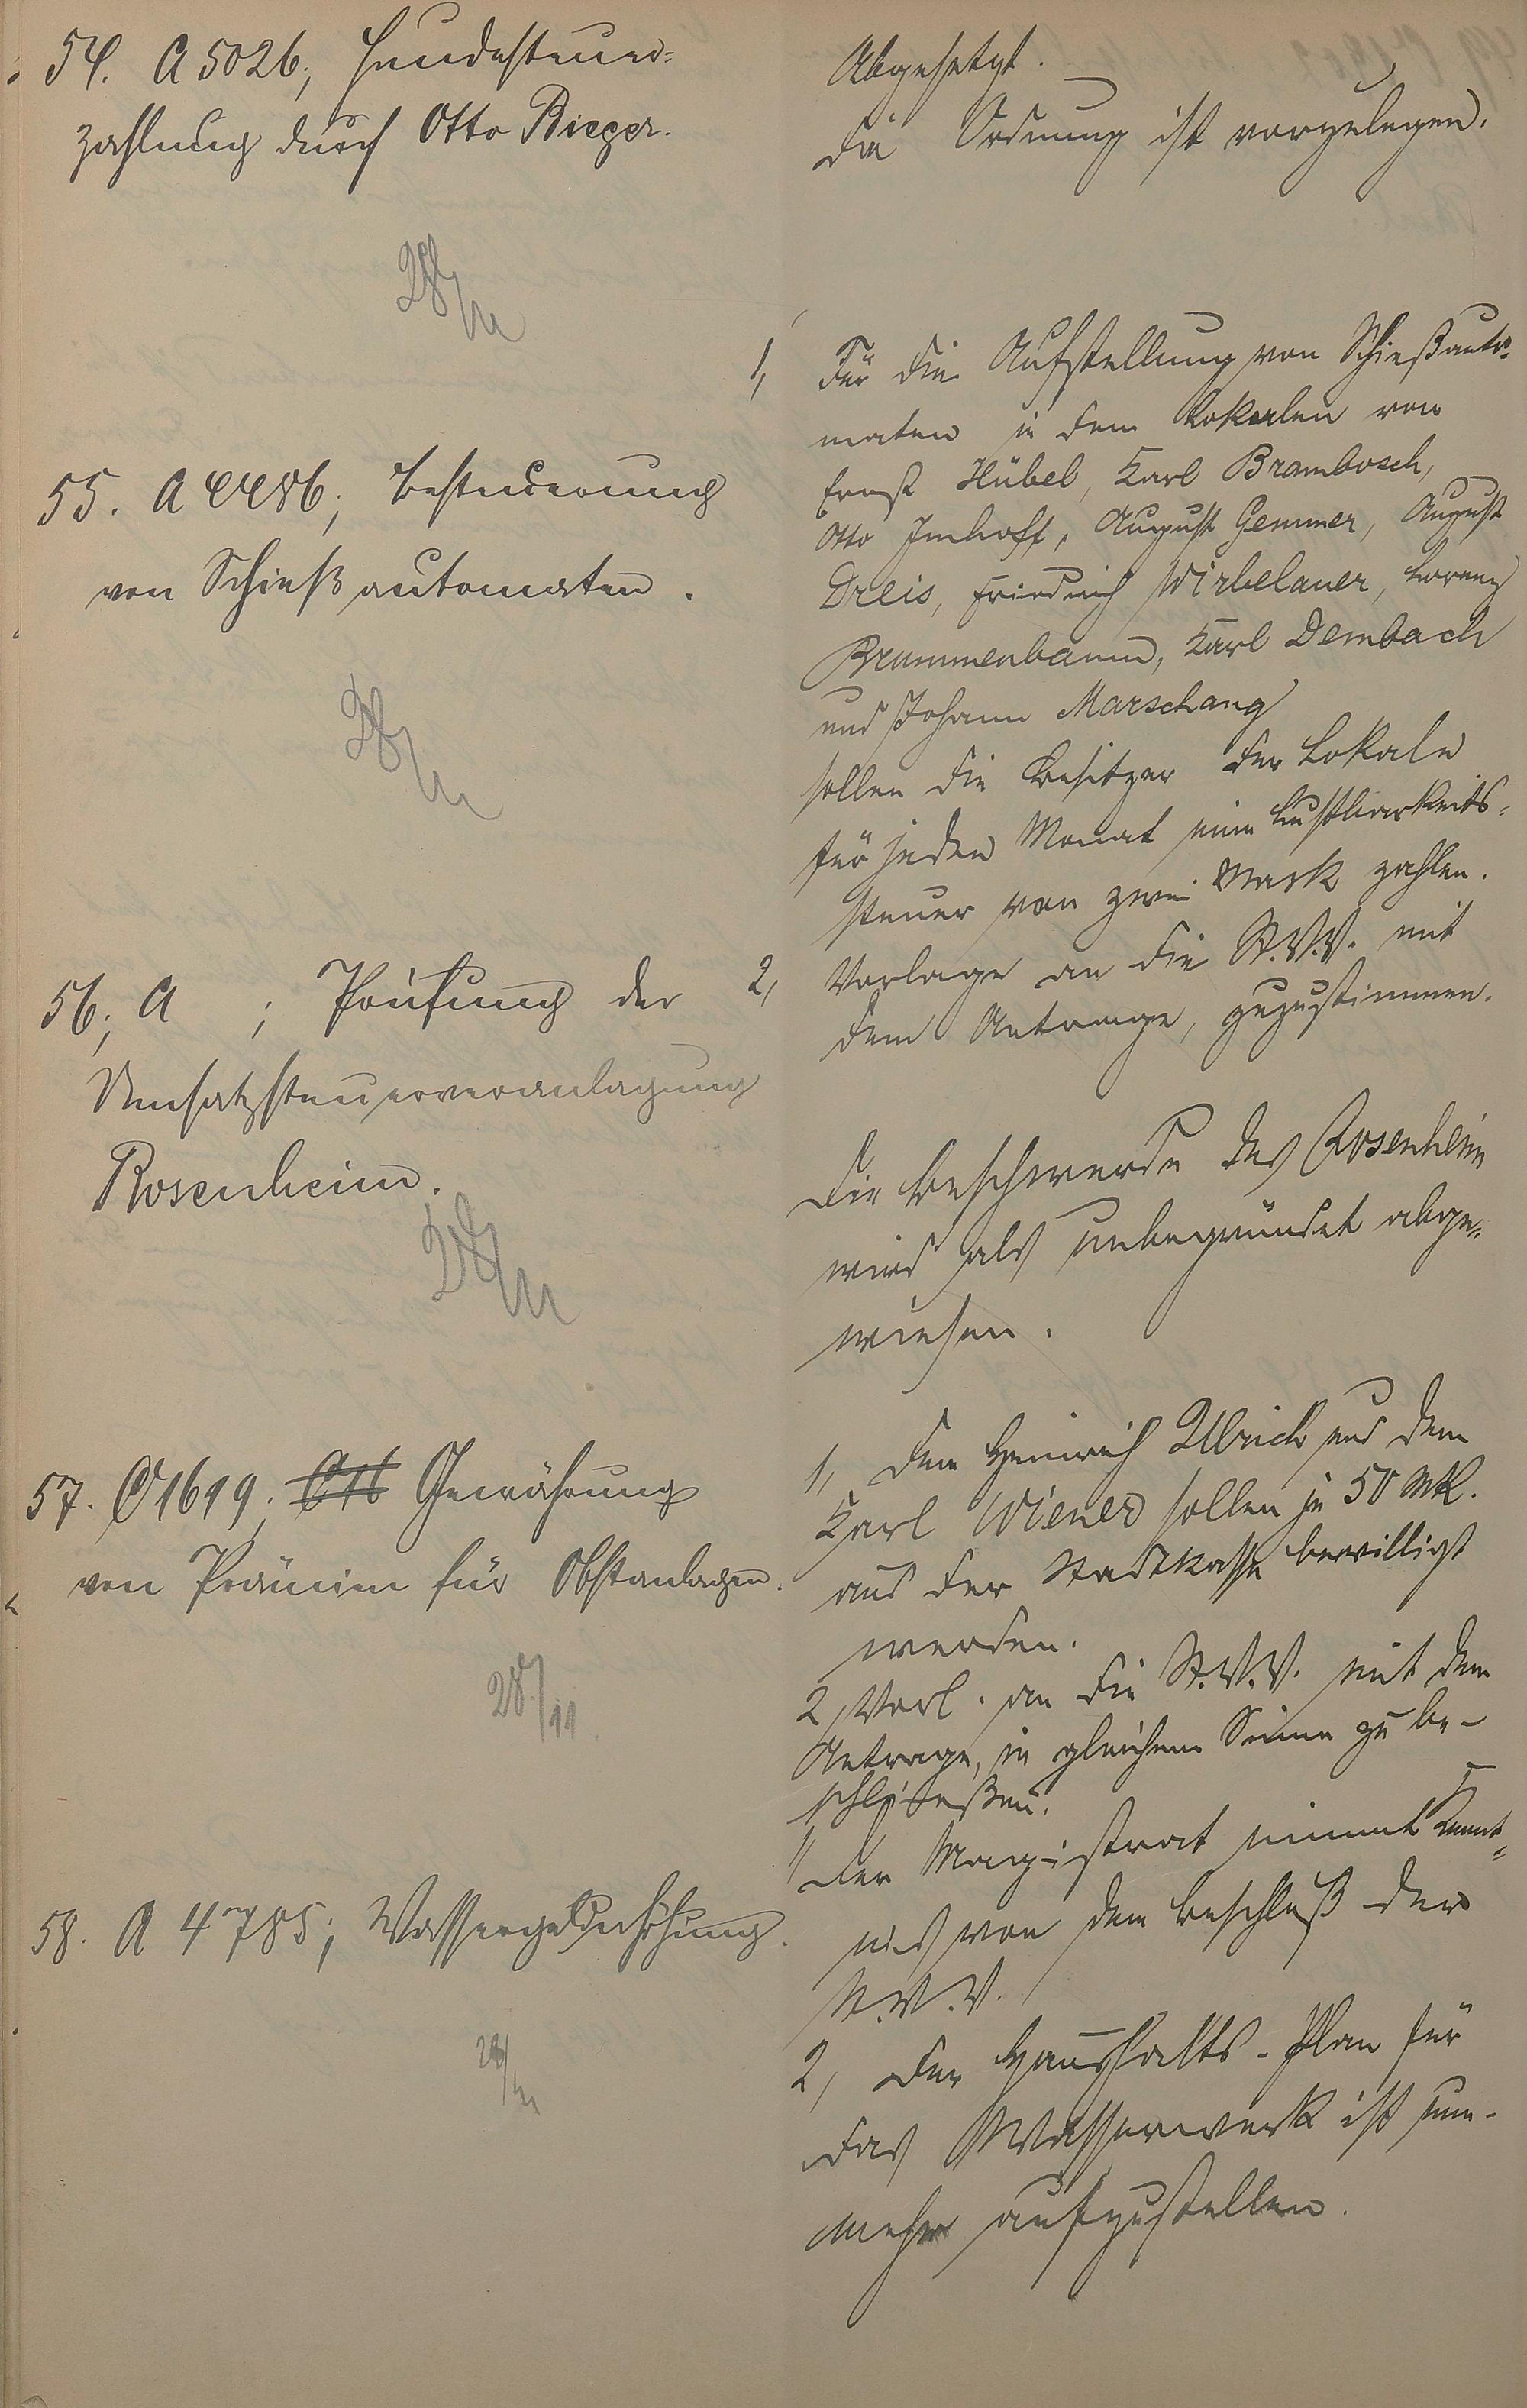 54. A 5026; Hundesteuer-
zahlung durch Otto Bieger.
28/11
Abgesetzt.
Die Ordnung ist vorzulegen.
55. A 4486; Besteuerung
von Schießautomaten.
28/11
1, Für die Aufstellung von Schießauto-
maten in dem Lokalen von
Ernst Hübel, Karl Brambosch,
Otto Imhoff, August Gemmer, August
Dreis, Friedrich Wirbelauer, Lorenz
Brummenbaum, Karl Dembach
und Johann Marschang
sollen die Besitzer der Lokale
für jeden Monat eine Lustbarkeits-
steuer von zwei Mark zahlen.
2, Vorlage an die St.V.V. mit
dem Antrage, zuzustimmen.
56; A ; Prüfung der
Umsatzsteuerveranlagung
Rosenheim.
28/11
Die Beschwerde des Rosenheim
wird als unbegründet abge-
wiesen.
57. C 1619; Gewährung
von Prämien für Obstanlagen.
28/11.
1, Dem Heinrich Ullrich und dem
Karl Wiener sollen je 50 Mk.
aus der Stadtkasse bewilligt
werden.
2, Vorl. an die St.V.V. mit dem
Antrage, in gleichem Sinne zu be-
schließen.
58. A 4785; Wassergelderhöhung.
28/11
1, Der Magistrat nimmt Kennt-
nis von dem Beschluß der
St.V.V.
2, Der Haushalts-Plan für
das Wasserwerk ist nun-
mehr aufzustellen.